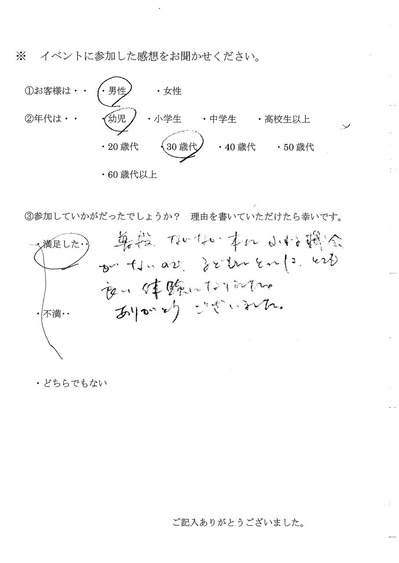 ※ イベントに参加した感想をお聞かせください。
①お客様は・・ ・男性 ・女性
②年代は・・ ・幼児 ・小学生 ・中学生 ・高校生以上
・20歳代 ・30歳代 ・40歳代 ・50歳代
・60歳代以上
③参加していかがだったでしょうか? 理由を書いていただけたら幸いです。
・満足した・・ 普段、なかなか木にふれる機会
がないので、子どもにとって、とても
良い体験になりました。
ありがとうございました。
・不満・・
・どちらでもない
ご記入ありがとうございました。